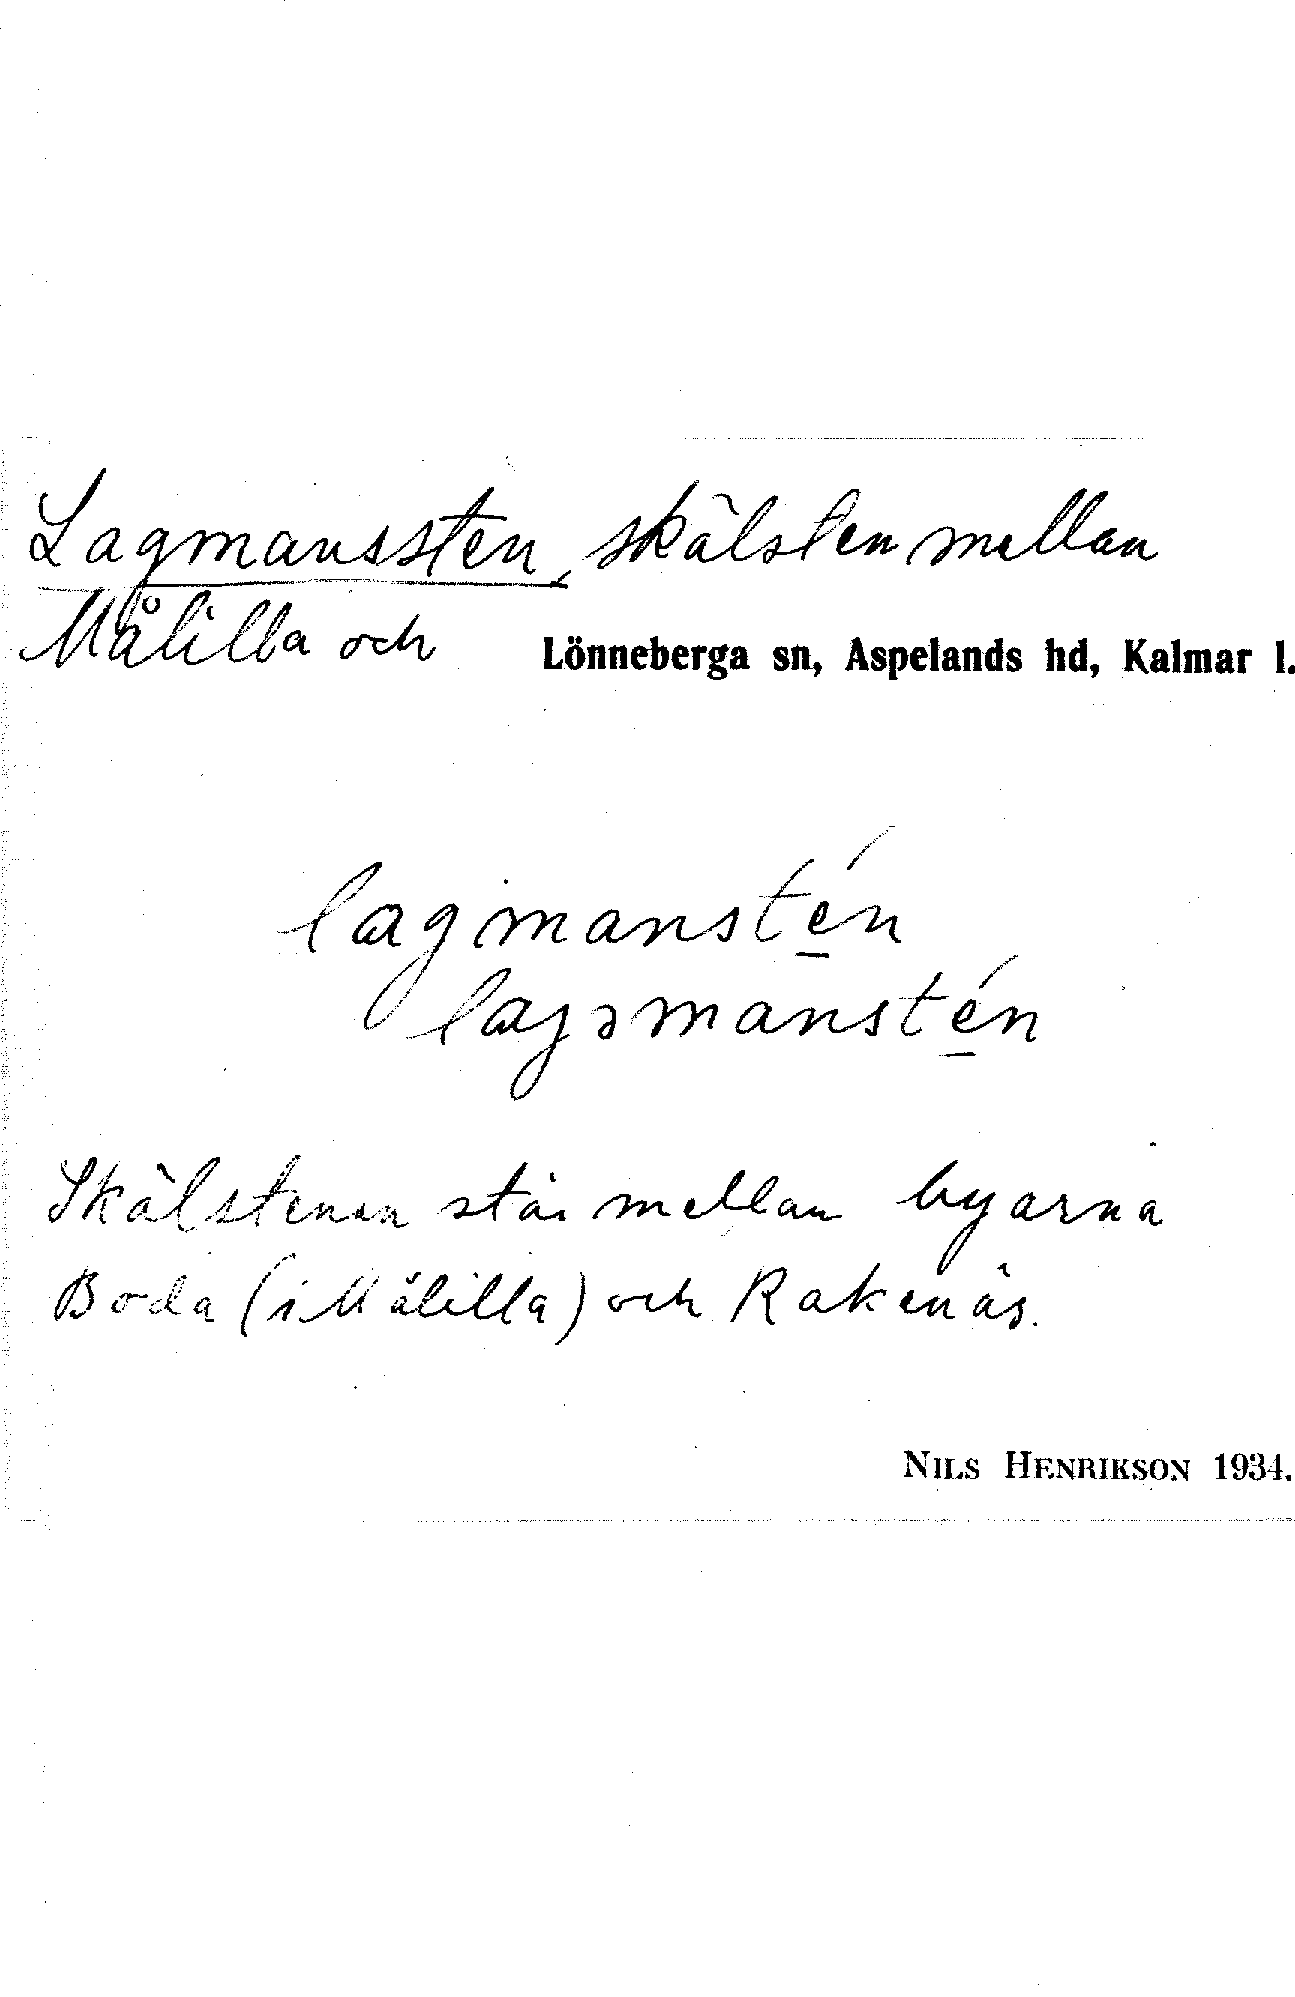 Lagmanssten, skälsten mellan
Målilla och Lönneberga sn, Aspelands hd, Kalmar l.
lagmanstén
lagəmanstén
Skälstenen står mellan byarna
Boda (i Målilla) och Rakenäs.
NILS HENRIKSON 1934.